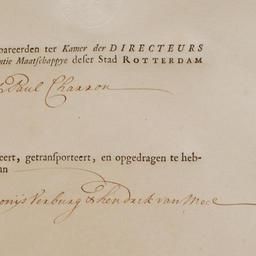 pareerden ter Kamer der DIRECTEURS
ntie Maatschappye deser Stad ROTTERDAM
Paul Charron
eert, getransporteert, en opgedragen te heb-
an
onijs Verburg & Hendrick van Meel